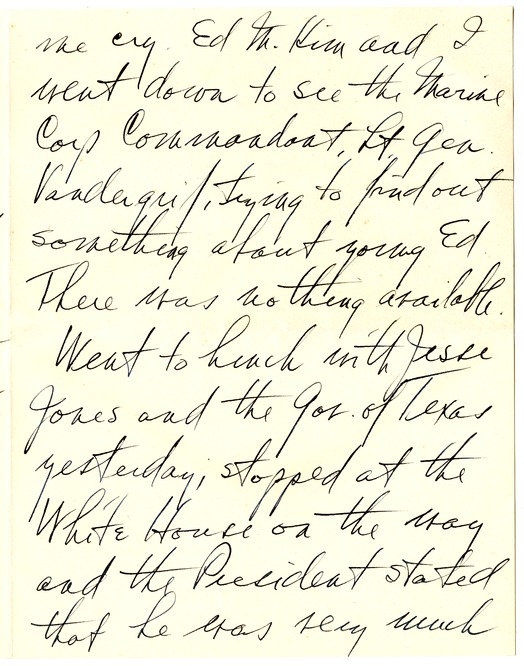 me cry. Ed M. Kim and I
went down to see the Marine
Corp Commandant, Lt. Gen.
Vandergrif, trying to find out
something about young Ed.
There was nothing available.
Went to lunch with Jesse
Jones and the Gov. of Texas
yesterday, stopped at the
White House on the way
and the President stated
that he was very much